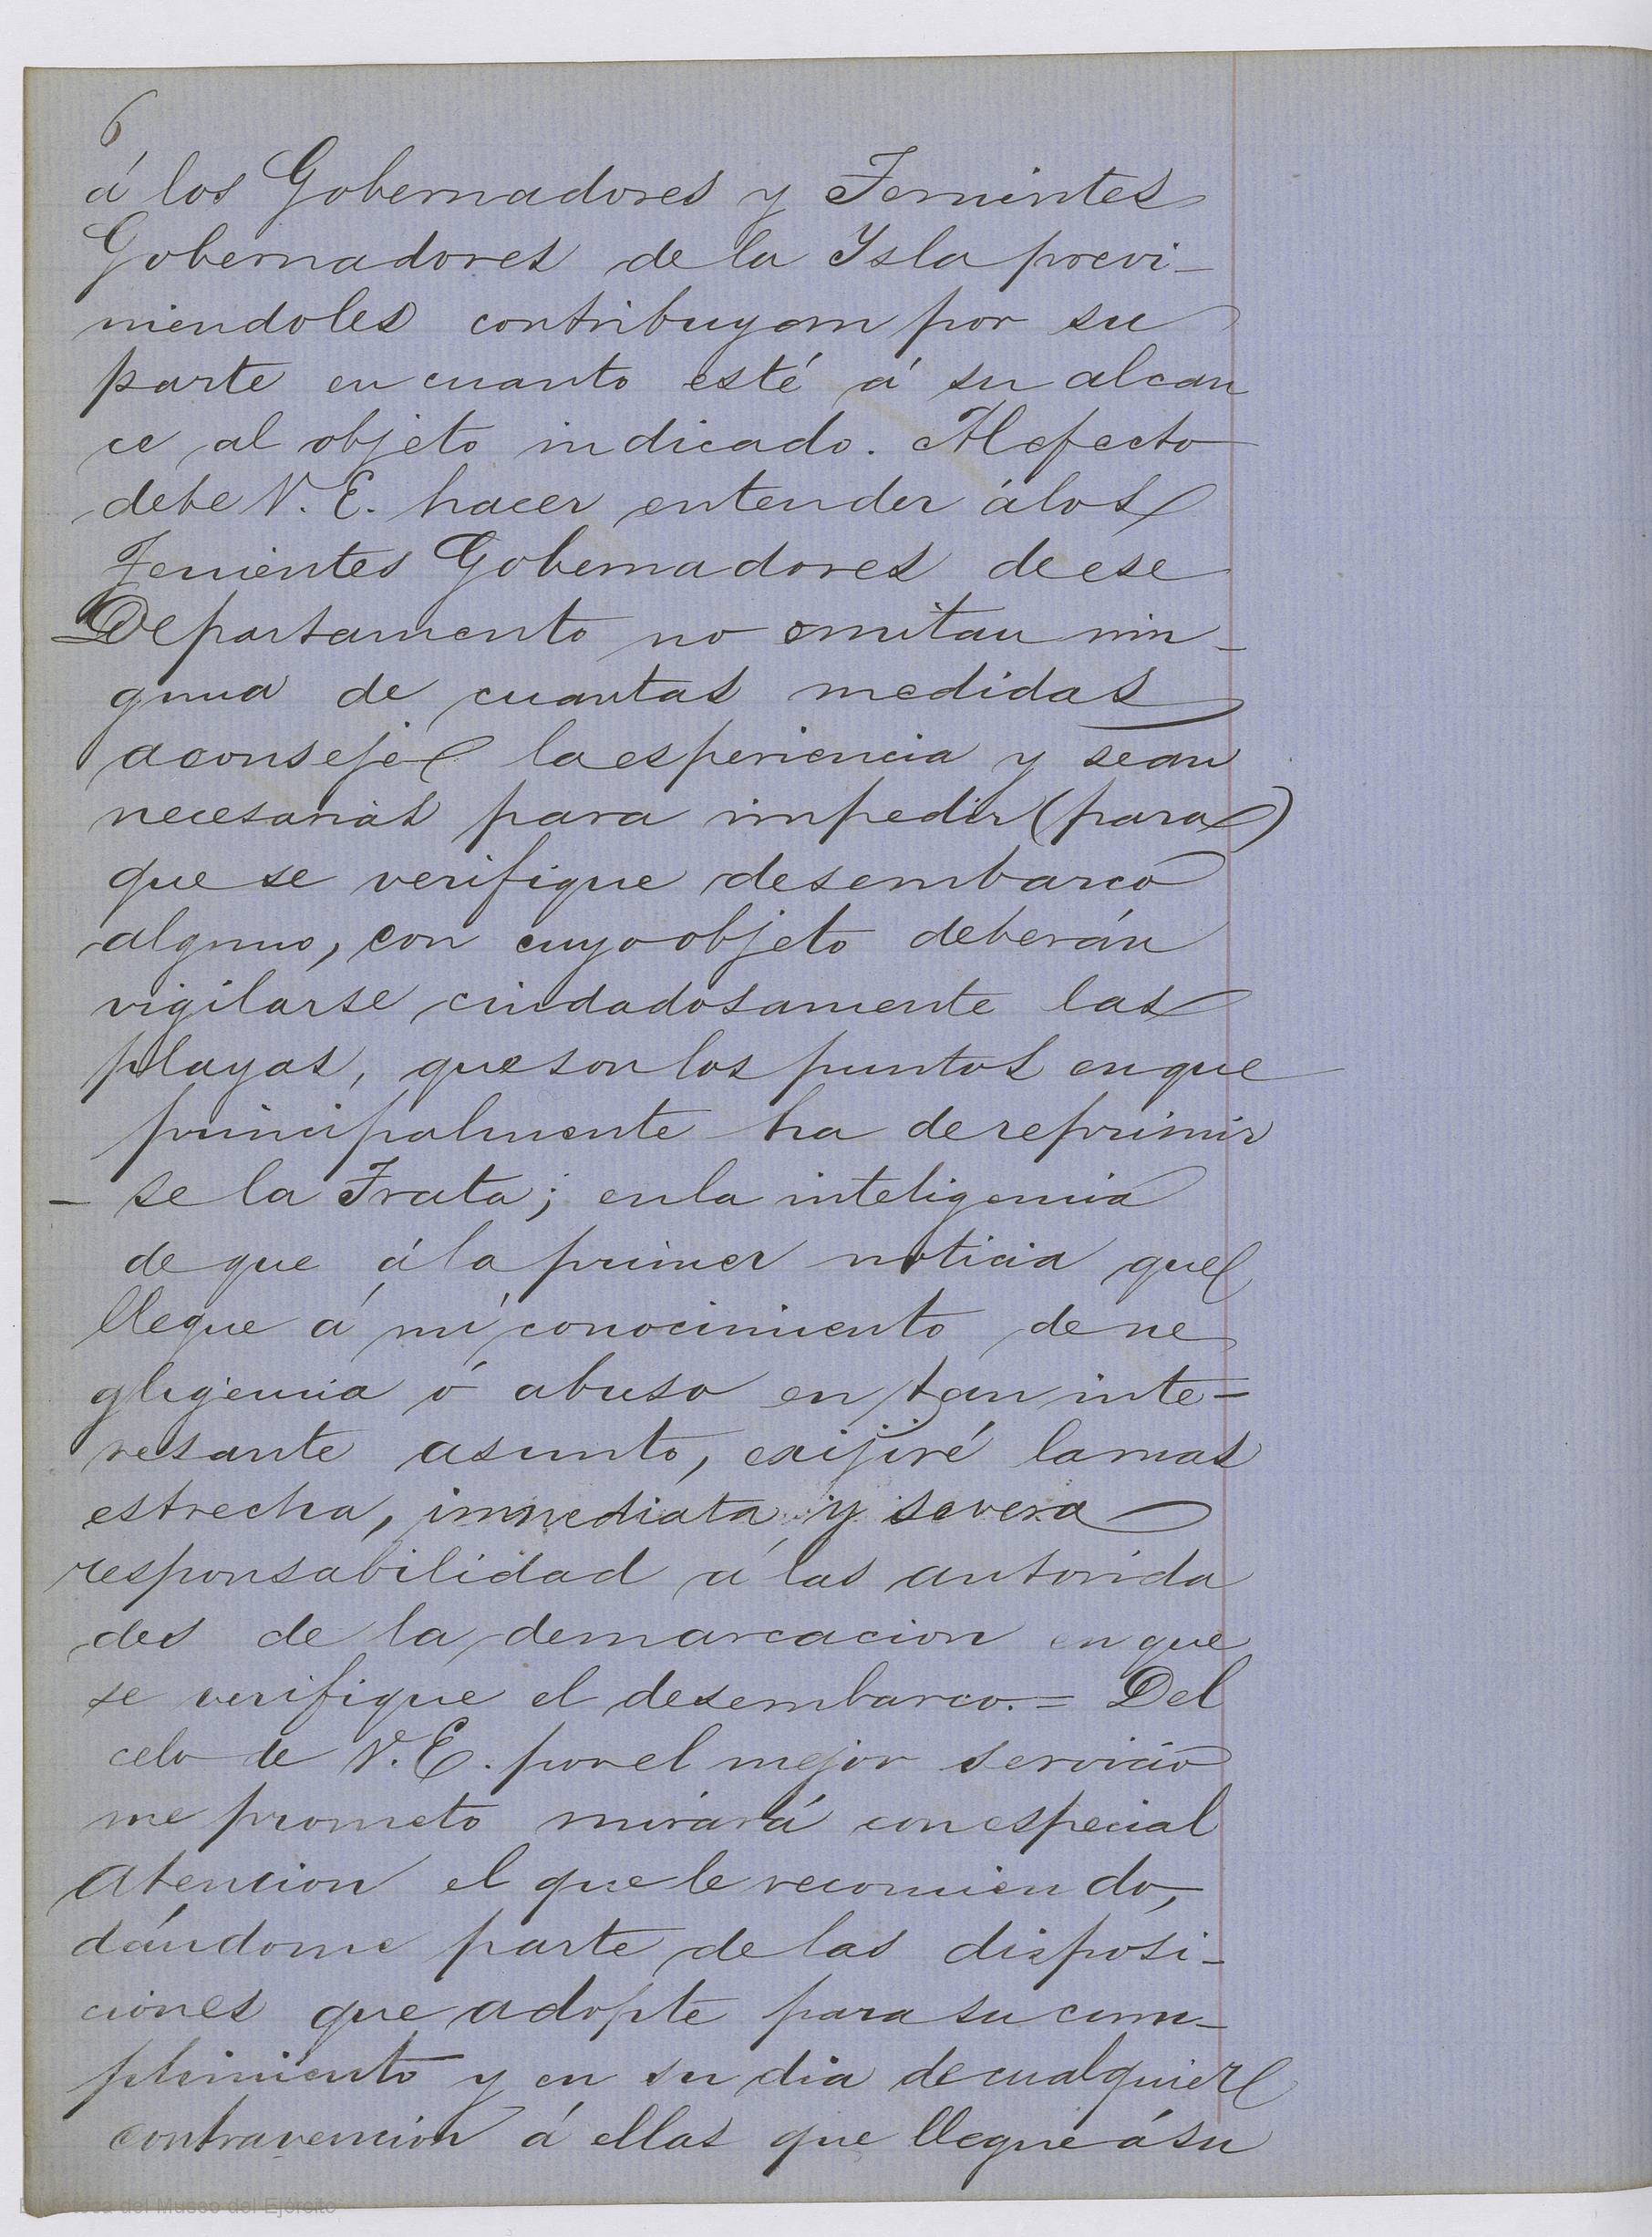 6
á los Gobernadores y Tenientes
Gobernadores de la Ysla previ-
niendoles contribuyan por su
parte en cuanto esté á su alcan
ce al objeto indicado. Al efecto
debe V. E. hacer entender á los
Tenientes Gobernadores de ese
Departamento no omitan nin-
guna de cuantas medidas
aconseje la esperiencia y sean
necesarias para impedir (para)
que se verifique desembarco
alguno, con cuyo objeto deberán
vigilarse cuidadosamente las
playas, que son los puntos en que
principalmente ha de reprimir
- se la Trata; en la inteligencia
de que á la primer noticia que
llegue á mi conocimiento de ne
gligencia ó abuso en tan inte-
resante asunto, exijiré la mas
estrecha, inmediata y severa
responsabilidad á las autorida
des de la demarcacion en que
se verifique el desembarco.= Del
celo de V. E. por el mejor servicio
me prometo mirará con especial
atencion el que le recomiendo,
dándome parte de las disposi-
ciones que adopte para su cum-
plimiento y en su dia de cualquier
contravencion á ellas que llegue á su
Biblioteca del Museo del Ejército